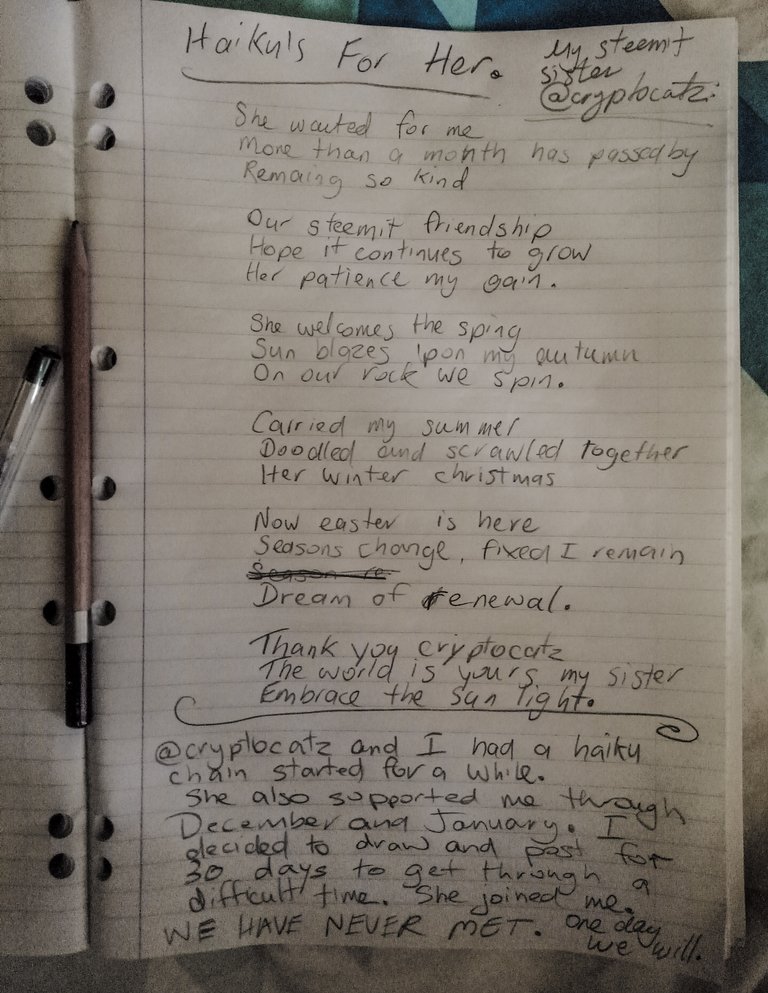 Haiku's For Her.
My steemit
sister
@cryptocatz.
She waited for me
More than a month has passed by
Remaing so kind
Our steemit friendship
Hope it continues to grow
Her patience my gain.
She welcomes the sping
Sun blazes upon my autumn
On our rock we spin.
Carried my summer
Doodled and scrawled together
Her winter christmas
Now easter is here
Seasons change, fixed I remain
Season re
Dream of renewal.
Thank you cryptocatz
The world is yours my sister
Embrace the sun light.
@cryptocatz and I had a haiku
chain started for a while.
She also supported me through
December and January. I
decided to draw and post for
30 days to get through a
difficult time. She joined me.
WE HAVE NEVER MET. One day
we will.